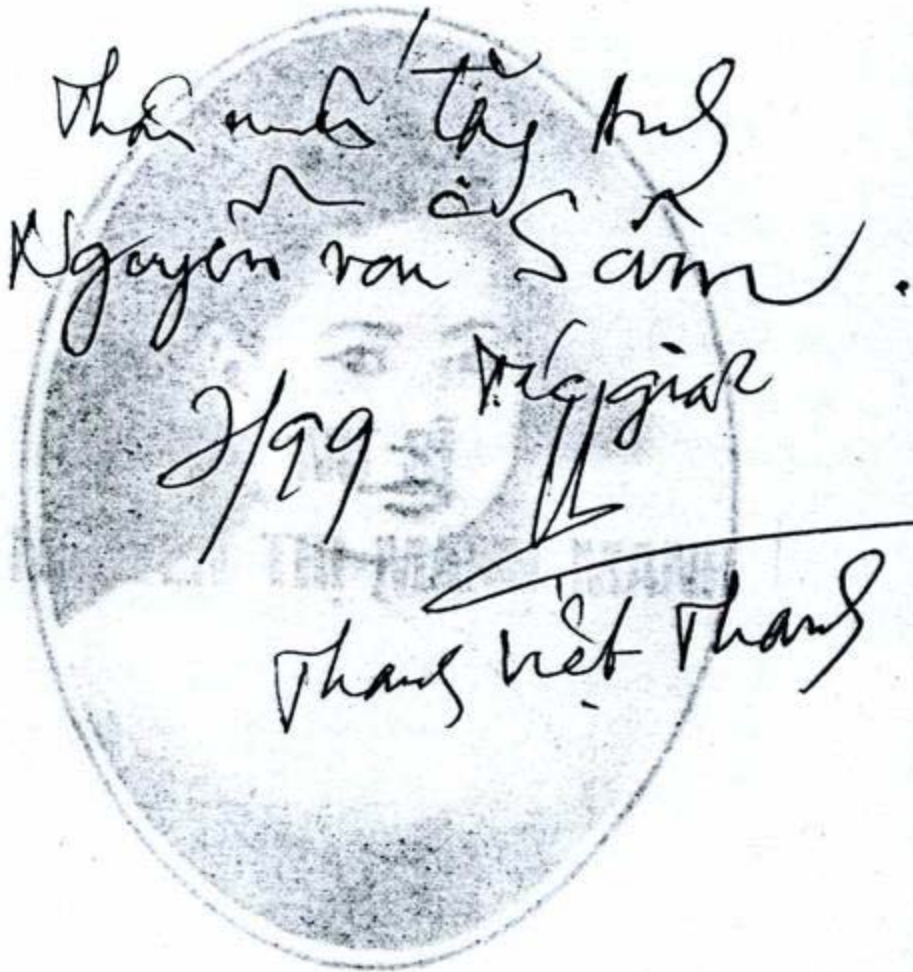 Thân mến tặng Anh
Nguyễn văn Sâm.
Tác giả
2/99
Thanh Việt Thanh